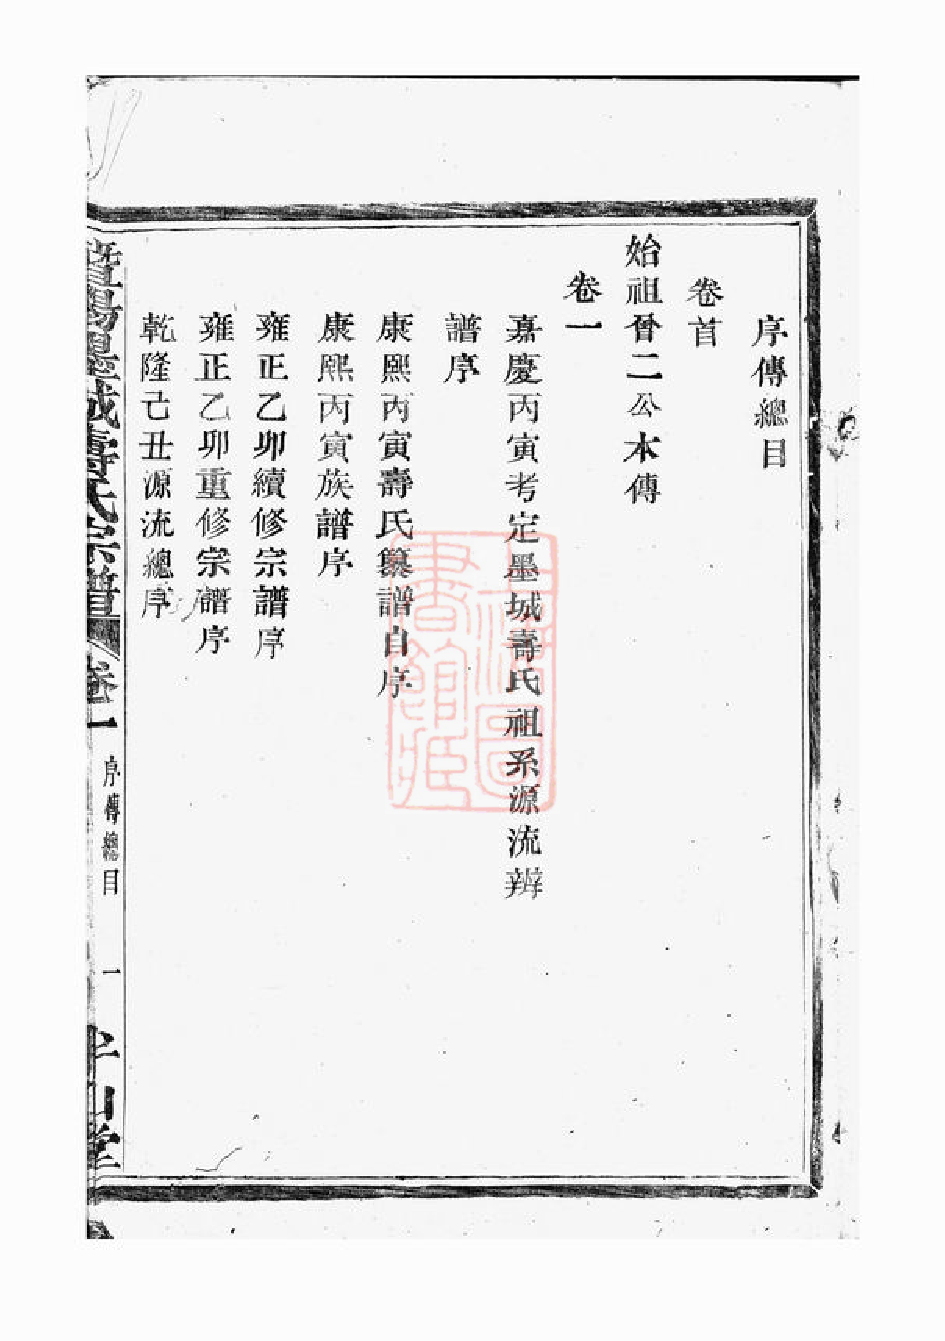 序傳總目
卷首
始祖晉二公本傳
卷一
嘉慶丙寅考定墨城壽氏祖系源流辨
譜序
康熙丙寅壽氏纂譜自序
康熙丙寅族譜序
雍正乙卯續修宗譜序
雍正乙卯重修宗譜序
乾隆己丑源流總序
暨陽墨城壽氏宗譜
卷一
序傳總目
一
上海圖書館藏